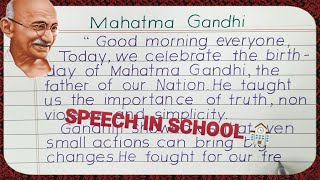 Mahatma Gandhi
" Good morning everyone,
Today, we celebrate the birth-
day of Mahatma Gandhi, the
father of our Nation. He taught
us the importance of truth, non
and simplicity.
SPEECH IN SCHOOL
Gandhi
small actions can bring
changes. He fought for our fre